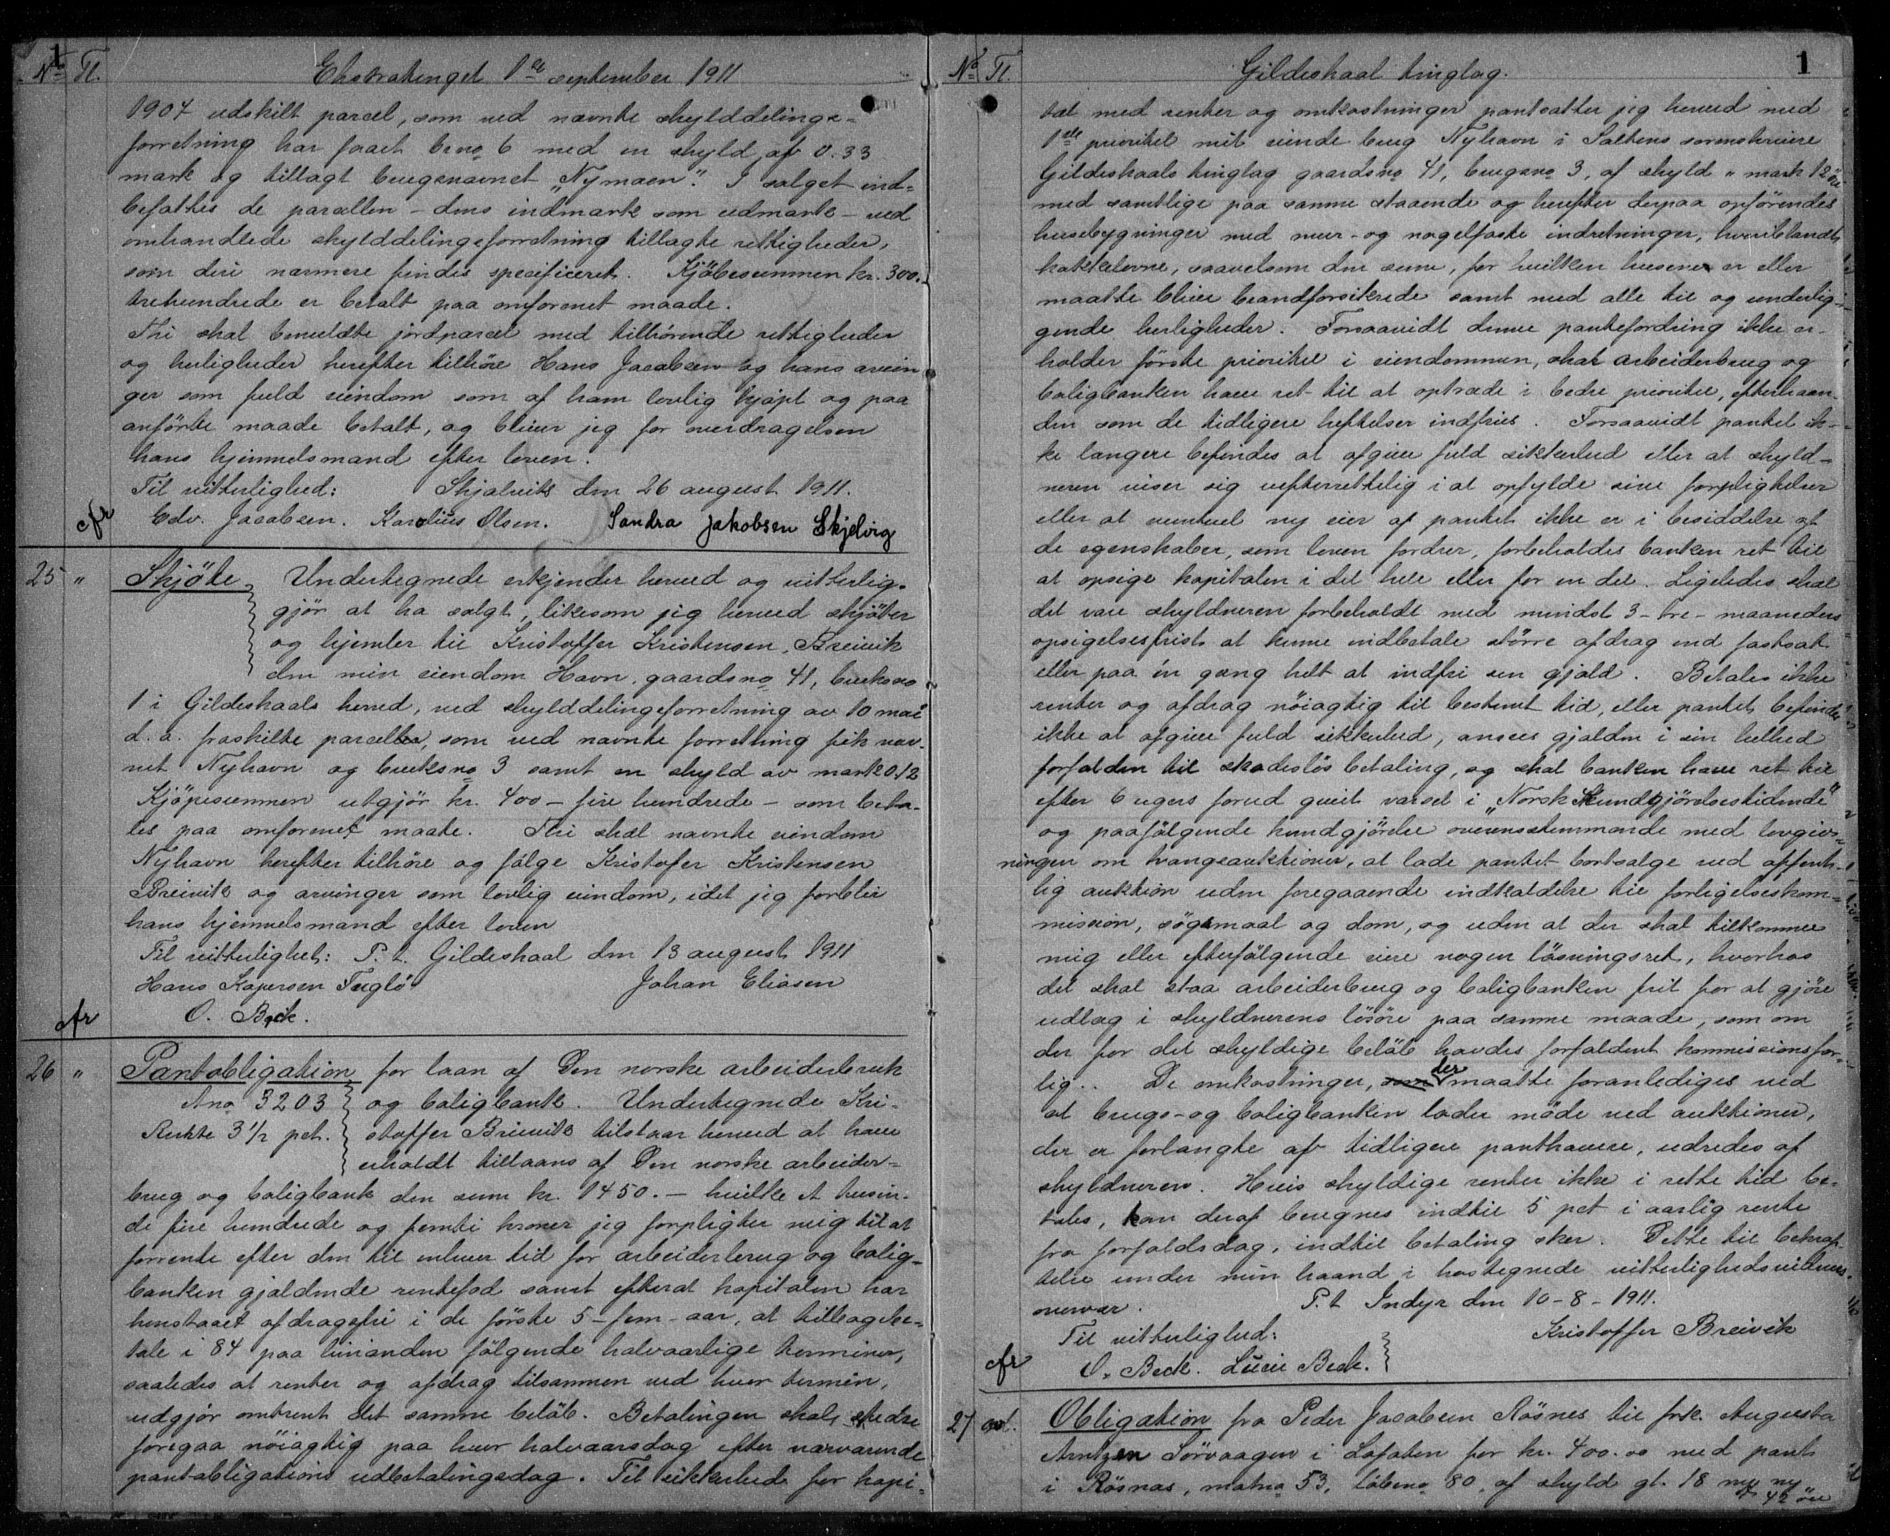 1
No Tl. Ekstratinget 1ste september 1911
1904 udskilt parcel, som ved nævnte skylddelings-
forretning har faaet brno 6 med en skyld af 0.33
mark og tillagt brugsnavnet "Nymoen". I salget ind-
befattes de parcellen - dens indmark som udmark - ved
omhandlede skylddelingsforretning tillagte rettigheder,
som deri nærmere findes specificeret. Kjøbesummen kr. 300.-
trehundrede er betalt paa omforenet maade.
Thi skal bemeldte jordparcel med tilhørende rettigheder
og herligheder herefter tilhøre Hans Jacobsen og hans arvin
ger som fuld eiendom som af ham lovlig kjøpt og paa
anførte maade betalt, og bliver jeg for overdragelsen
hans hjemmelsmand efter loven.
Til vitterlighed: Skjelvik den 26 august 1911.
cfr Edv. Jacobsen. Karolius Olsen. Sandra Jakobsen Skjelvig
25 " Skjøte Undertegnede erkjender herved og vitterlig-
gjør at ha solgt, likesom jeg herved skjøter
og hjemler til Kristoffer Kristensen, Breivik
den min eiendom Havn, gaardsno 41, bruksno
1 i Gildeskaals herred, ved skylddelingsforretning av 10 mai
d. a. fraskilte parcel, som ved nævnte forretning fik nav-
net Nyhavn og bruksno 3 samt en skyld av mark 0.12
Kjøpesummen utgjør kr. 400 - fire hundrede - som beta-
les paa omforenet maate. Thi skal nævnte eiendom
Nyhavn herefter tilhøre og følge Kristofer Kristensen
Breivik og arvinger som lovlig eiendom, idet jeg forblir
hans hjemmelsmand efter loven
Til vitterlighet: P. t. Gildeskaal den 13 august 1911
Hans Kaspersen Fuglø Johan Eliasen
cfr O. Beck.
26 " Pantobligation for laan af Den norske arbeiderbruk
Ano 3203 og boligbank. Undertegnede Kri-
Rente 3 1/2 pct. stoffer Breivik tilstaar herved at have
erholdt tillaans af Den norske arbeider-
brug og boligbank den sum kr. 1450. - hvilke et tusin-
de fire hundrede og femti kroner jeg forpligter mig til at
forrente efter den til enhver tid for arbeiderbrug og bolig-
banken gjældende rentefod samt efterat kapitalen har
henstaaet afdragsfri i de første 5 - fem - aar, at tilbagebe-
tale i 84 paa hinanden følgende halvaarlige terminer,
saaledes at renter og afdrag tilsammen ved hver termin,
udgjør omtrent det samme beløb. Betalingen skal
foregaa nøiagtig paa hver halvaarsdag efter nærværende
pantobligations udbetalingsdag. Til sikkerhed for kapi-
No Tl. Gildeskaal tinglag. 1
tal med renter og omkostninger pantsætter jeg herved med
1ste prioritet mit eiende brug Nyhavn i Saltens sorenskriveri
Gildeskaals tinglag gaardsno 41, brugsno 3, af skyld " mark 12 øre
med samtlige paa samme staaende og herefter derpaa opførendes
husebygninger med mur- og nagelfaste indretninger, hvoriblandt
kakkelovne, saavelsom den sum, for hvilken husene er eller
maatte blive brandforsikrede samt med alle til og underlig-
gende herligheder. Forsaavidt denne pantefordring ikke er-
holder første prioritet i eiendommen, skal arbeiderbrug og
boligbanken have ret til at optræde i bedre prioritet, efterhaan-
den som de tidligere heftelser indfries. Forsaavidt pantet ik-
ke længere befindes at afgive fuld sikkerhed eller at skyld-
neren viser sig uefterrettelig i at opfylde sine forpligtelser
eller at eventuel ny eier af pantet ikke er i besiddelse af
de egenskaber, som loven fordrer, forbeholdes banken ret til
at opsige kapitalen i det hele eller for en del. Ligeledes skal
det være skyldneren forbeholdt med mindst 3 - tre - maaneders
opsigelsesfrist at kunne indbetale større afdrag end fastsat
eller paa én gang helt at indfri sin gjæld. Betales ikke
renter og afdrag nøiagtig til bestemt tid, eller pantet befindes
ikke at afgive fuld sikkerhed, ansees gjælden i sin helhed
forfalden til skadesløs betaling, og skal banken have ret til
efter 6 ugers forud givet varsel i "Norsk Kundgjørelsestidende"
og paafølgende kundgjørelse overensstemmende med lovgiv-
ningen om tvangsauktioner, at lade pantet bortsælge ved offent-
lig auktion uden foregaaende indkaldelse til forligelseskom-
mission, søgsmaal og dom, og uden at der skal tilkomme
mig eller efterfølgende eiere nogen løsningsret, hvorhos
det skal staa arbeiderbrug og boligbanken frit for at gjøre
udlæg i skyldnerens løsøre paa samme maade, som om
der for det skyldige beløb havdes forfaldent kommissionsfor-
lig.. De omkostninger, som der maatte foranlediges ved
at brugs- og boligbanken lader møde ved auktioner,
der er forlangte af tidligere panthavere, udredes af
skyldneren. Hvis skyldige renter ikke i rette tid be-
tales, kan deraf beregnes indtil 5 pct i aarlig rente
fra forfaldsdag, indtil betaling sker. Dette til bekræf-
telse under min haand i hostegnede vitterlighedsvidners
overvær. P. t. Indyr den 10-8-1911.
Til vitterlighed: Kristoffer Breivik
cfr O. Beck. Lucie Beck.
27 Obligation fra Peder Jacobsen Røsnes til frk. Augusta
Arntzen Sørvaagen i Lofoten for kr. 400.00 med pant
i Røsnæs, matno 53, løbeno 80, af skyld gl. 18 ny
42 øre